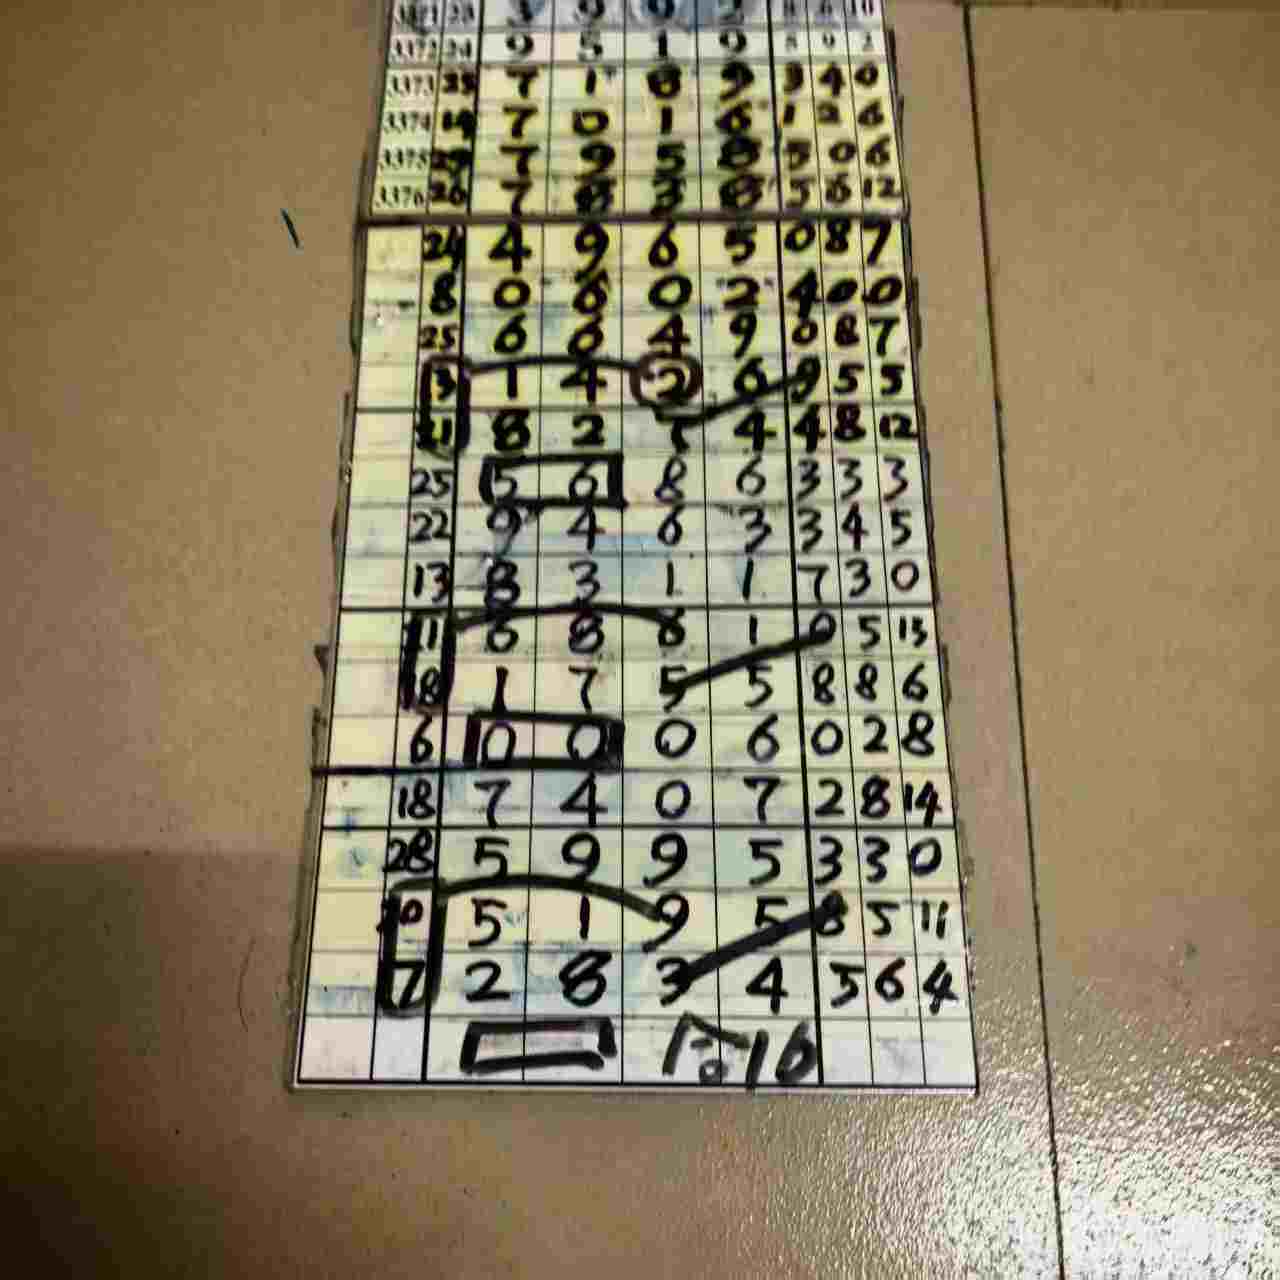 3371 23 3 9 9 2 8 6 10
3372 24 9 5 1 9 8 9 2
3373 25 7 1 8 9 3 4 0
3374 14 7 0 1 6 1 2 6
3375 29 7 9 5 8 5 0 6
3376 26 7 8 3 8 5 6 12
24 4 9 6 5 0 8 7
8 0 6 0 2 4 0 0
25 6 6 4 9 0 8 7
13 1 4 2 6 9 5 5
21 8 2 7 4 4 8 12
25 5 6 8 6 3 3 3
22 9 4 6 3 3 4 5
13 8 3 1 1 7 3 0
21 6 8 6 1 0 5 13
18 1 7 5 5 8 8 6
6 0 0 0 6 0 2 8
18 7 4 0 7 2 8 14
28 5 9 9 5 3 3 0
20 5 1 9 5 8 5 11
17 2 8 3 4 5 6 4
合16